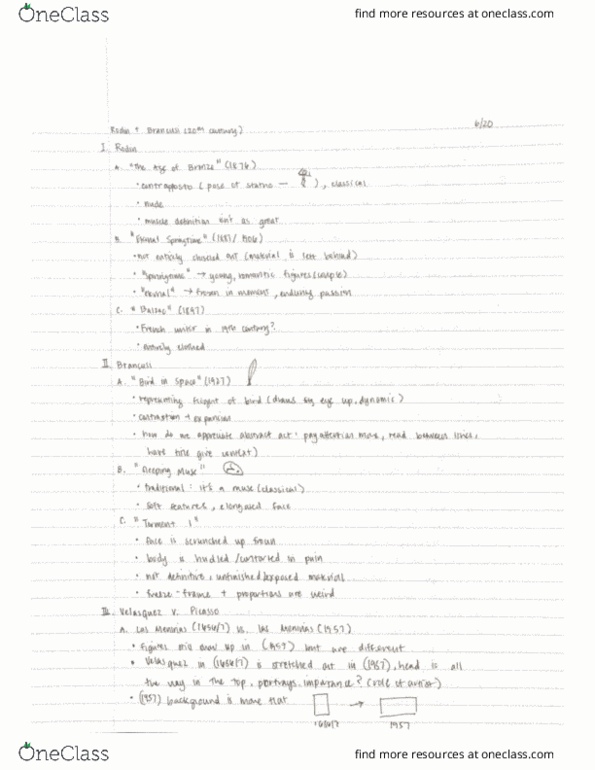 OneClass
find more resources at oneclass.com
Rodin + Brancusi (20th century)
6/20
I. Rodin
A. "The Age of Bronze" (1876)
• contrapposto (pose of statue — ), classical
• nude
• muscle definition isn't as great
B. "Eternal Springtime" (1881/1906)
• not entirely chiseled out (material is left behind)
• "springtime" → young, romantic figures (couple)
• "eternal" → frozen in moment, enduring passion
C. "Balzac" (1897)
• French writer in 19th century?
• entirely clothed
II. Brancusi
A. "Bird in Space" (1927)
• representing flight of bird (draws my eye up, dynamic)
• contraction + expansion
• how do we appreciate abstract art - pay attention more, read between lines,
have title give context)
B. "Sleeping Muse"
• traditional: it's a muse (classical)
• soft features, elongated face
C. "Torment I"
• face is scrunched up frown
• body is huddled/contorted in pain
• not definitive, unfinished/exposed material
• freeze-frame + proportions are weird
III. Velasquez v. Picasso
A. Las Meninas (1656/7) vs. Las Meninas (1957)
• figures mix over up in (1957) but are different
• Velasquez in (1656/7) is stretched out in (1957), head is all
the way in the top, portrays importance? (role of artist)
• (1957) background is more flat →
1656/7 1957
OneClass
find more resources at oneclass.com